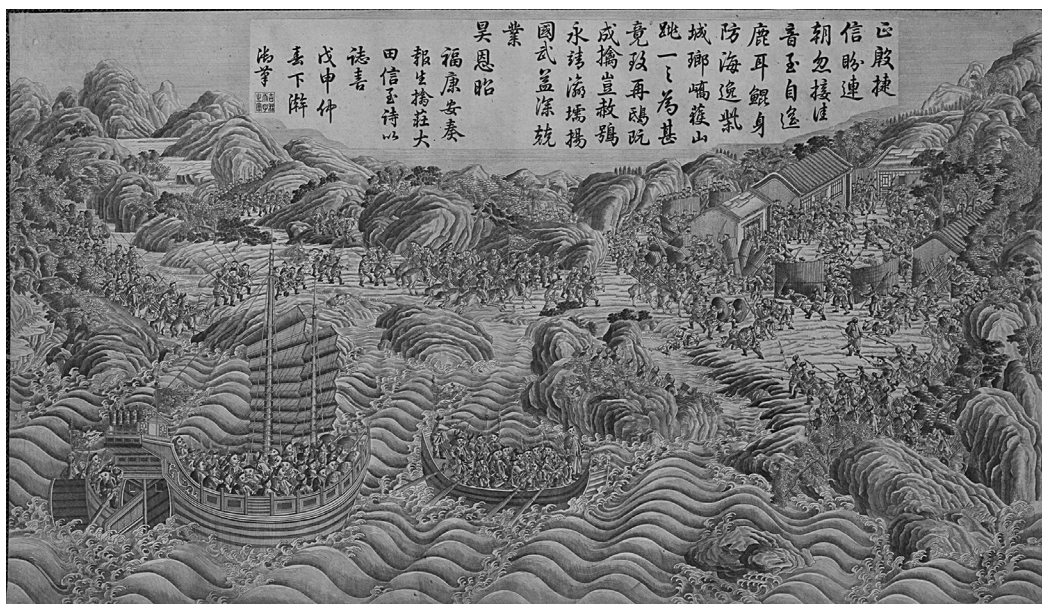 正殷捷
信盼連
朝忽接佳
音至自遙
鹿耳鯤身
防海逸柴
城瑯嶠獲山
跳一之為甚
竟致再鴟既
成擒豈赦鴞
永靖瀛壖揚
國武益深兢
業
昊恩昭
福康安奏
報生擒莊大
田信至詩以
誌喜
戊申仲
春下澣
御筆